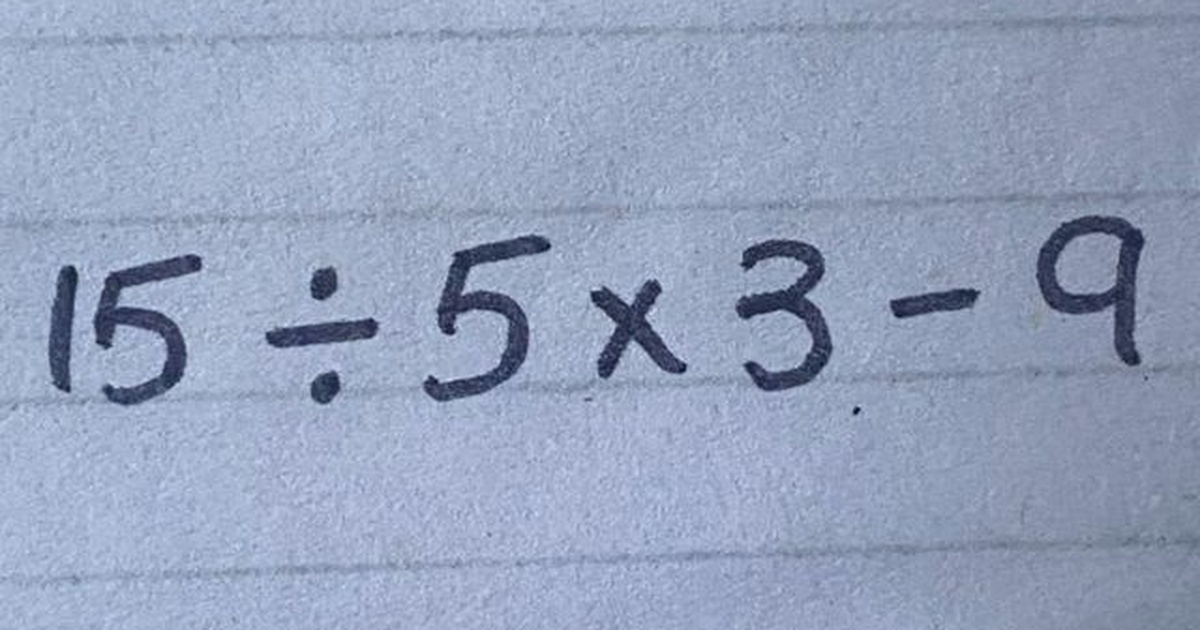 15 ÷ 5 x 3 - 9